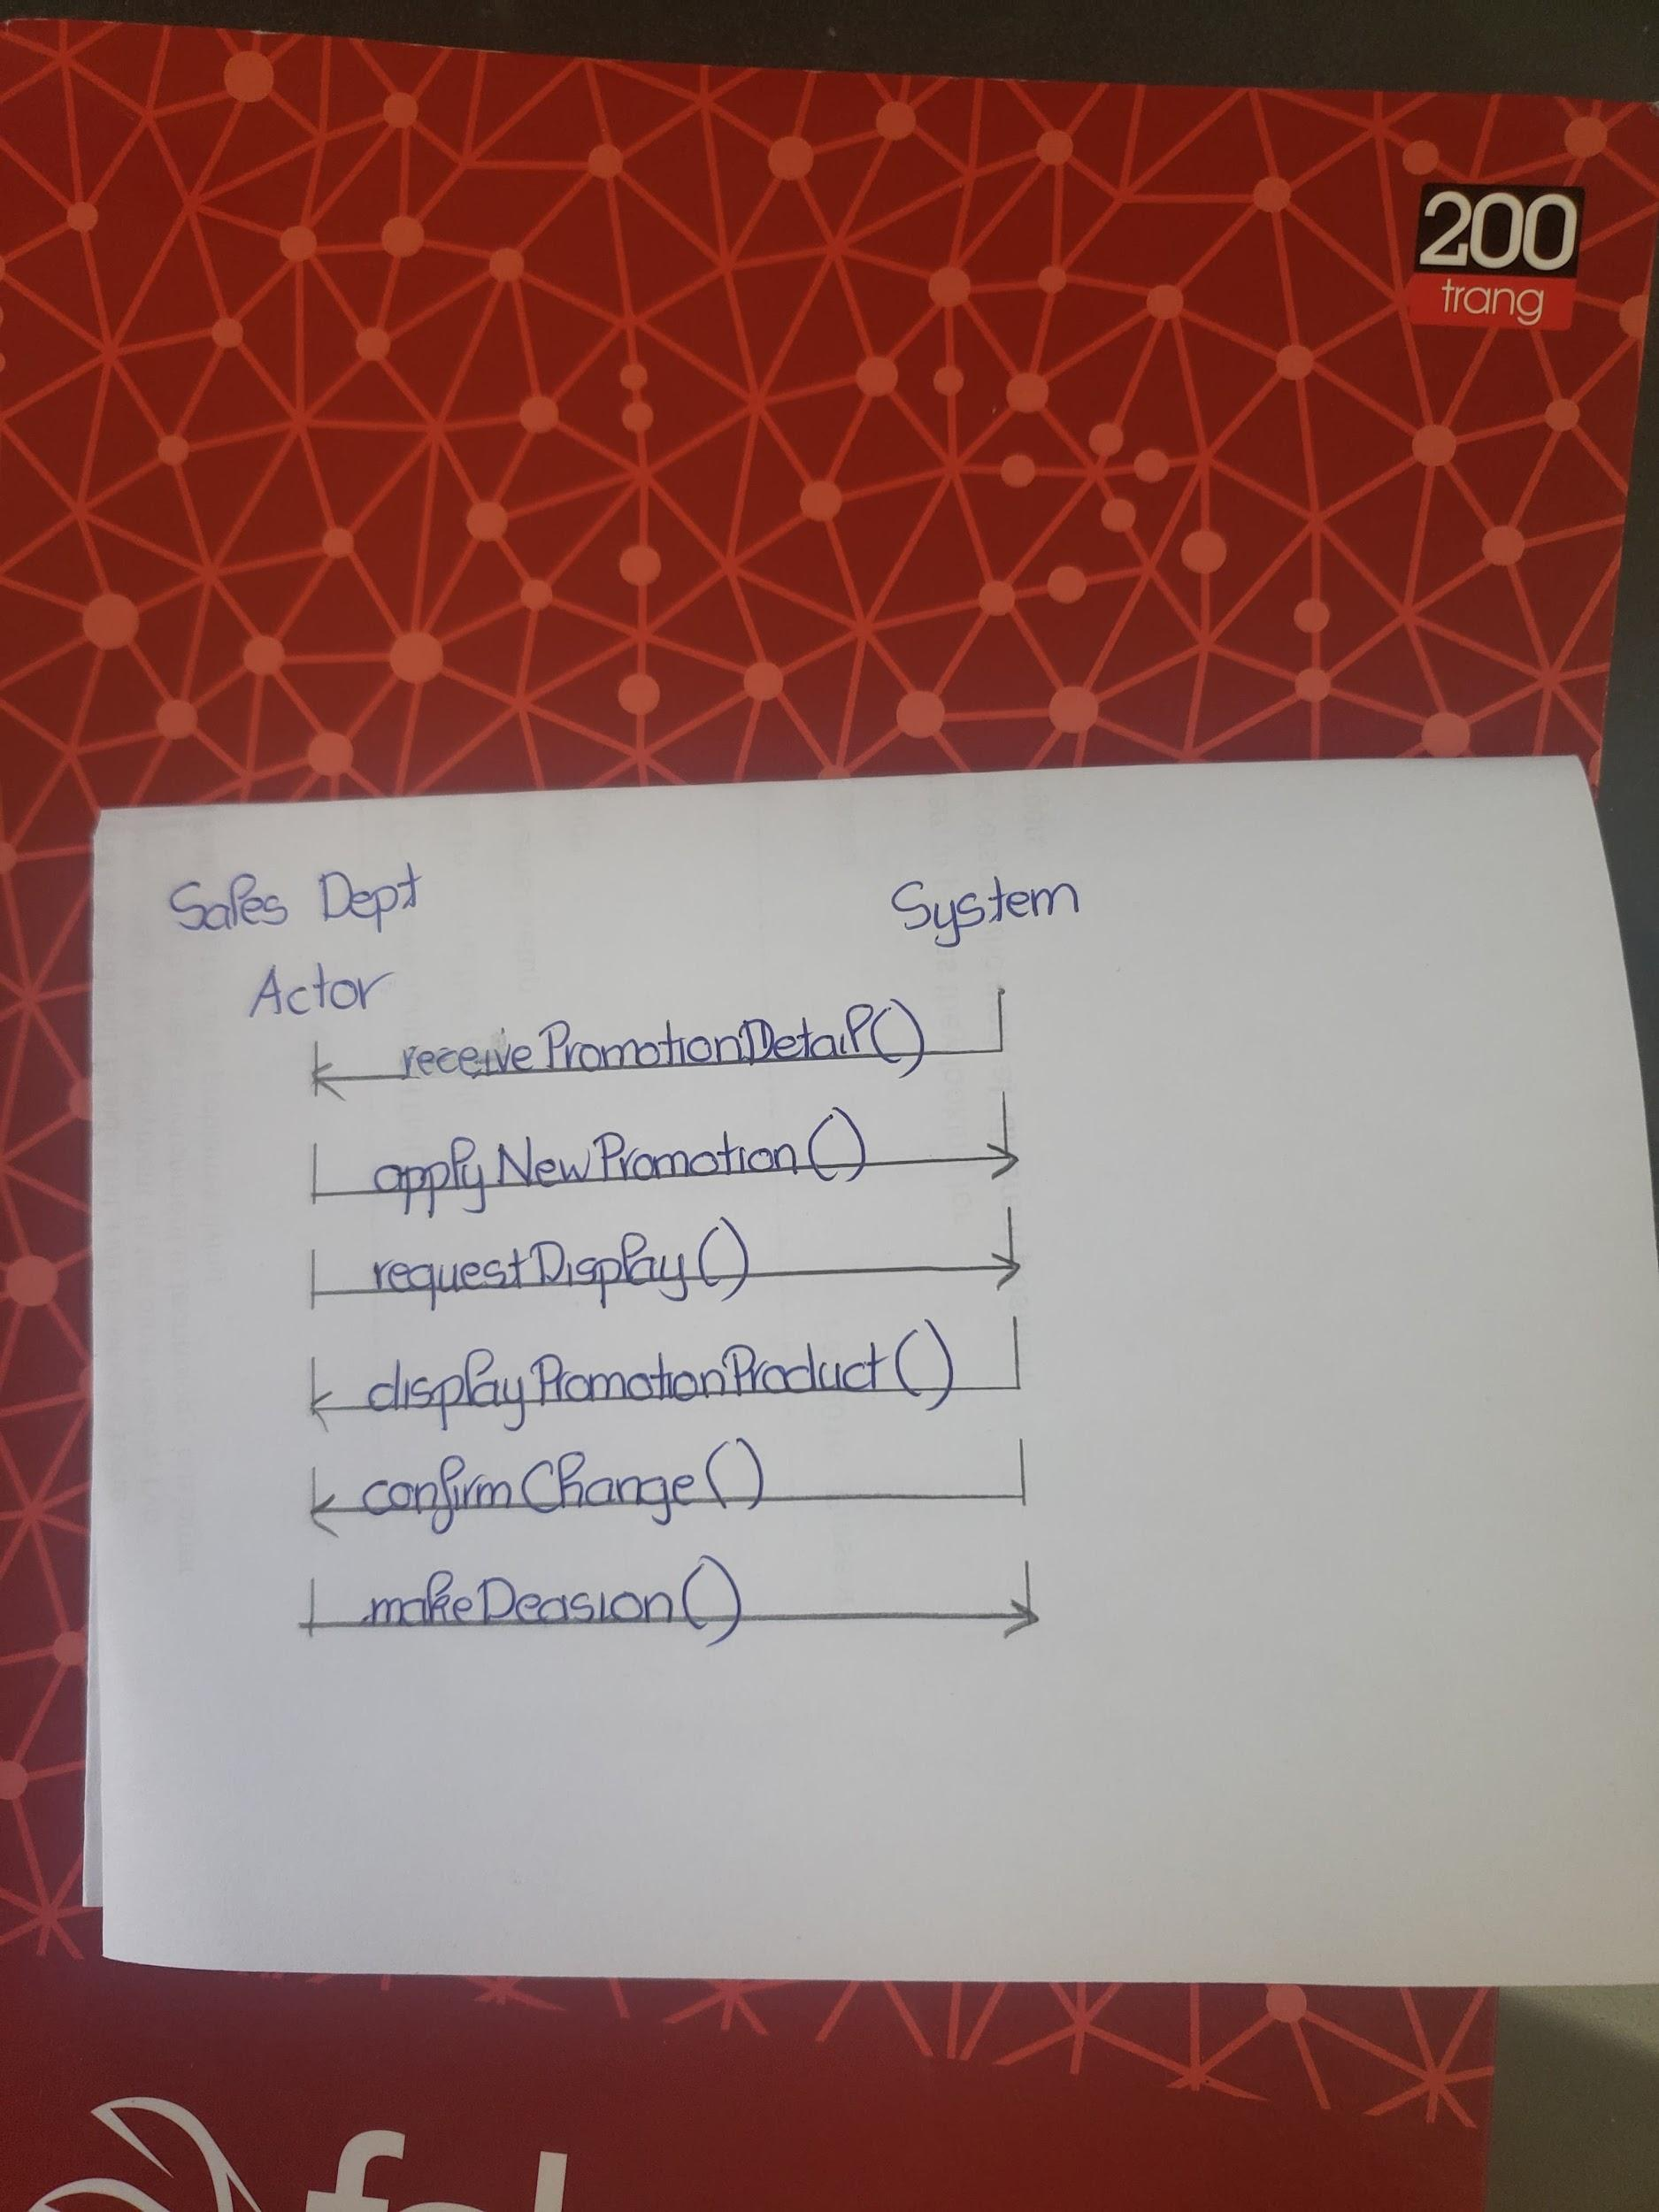 200
trang
Sales Dept
System
Actor
receivePromotionDetail()
applyNewPromotion()
requestDisplay()
displayPromotionProduct()
confirmChange()
makeDecision()